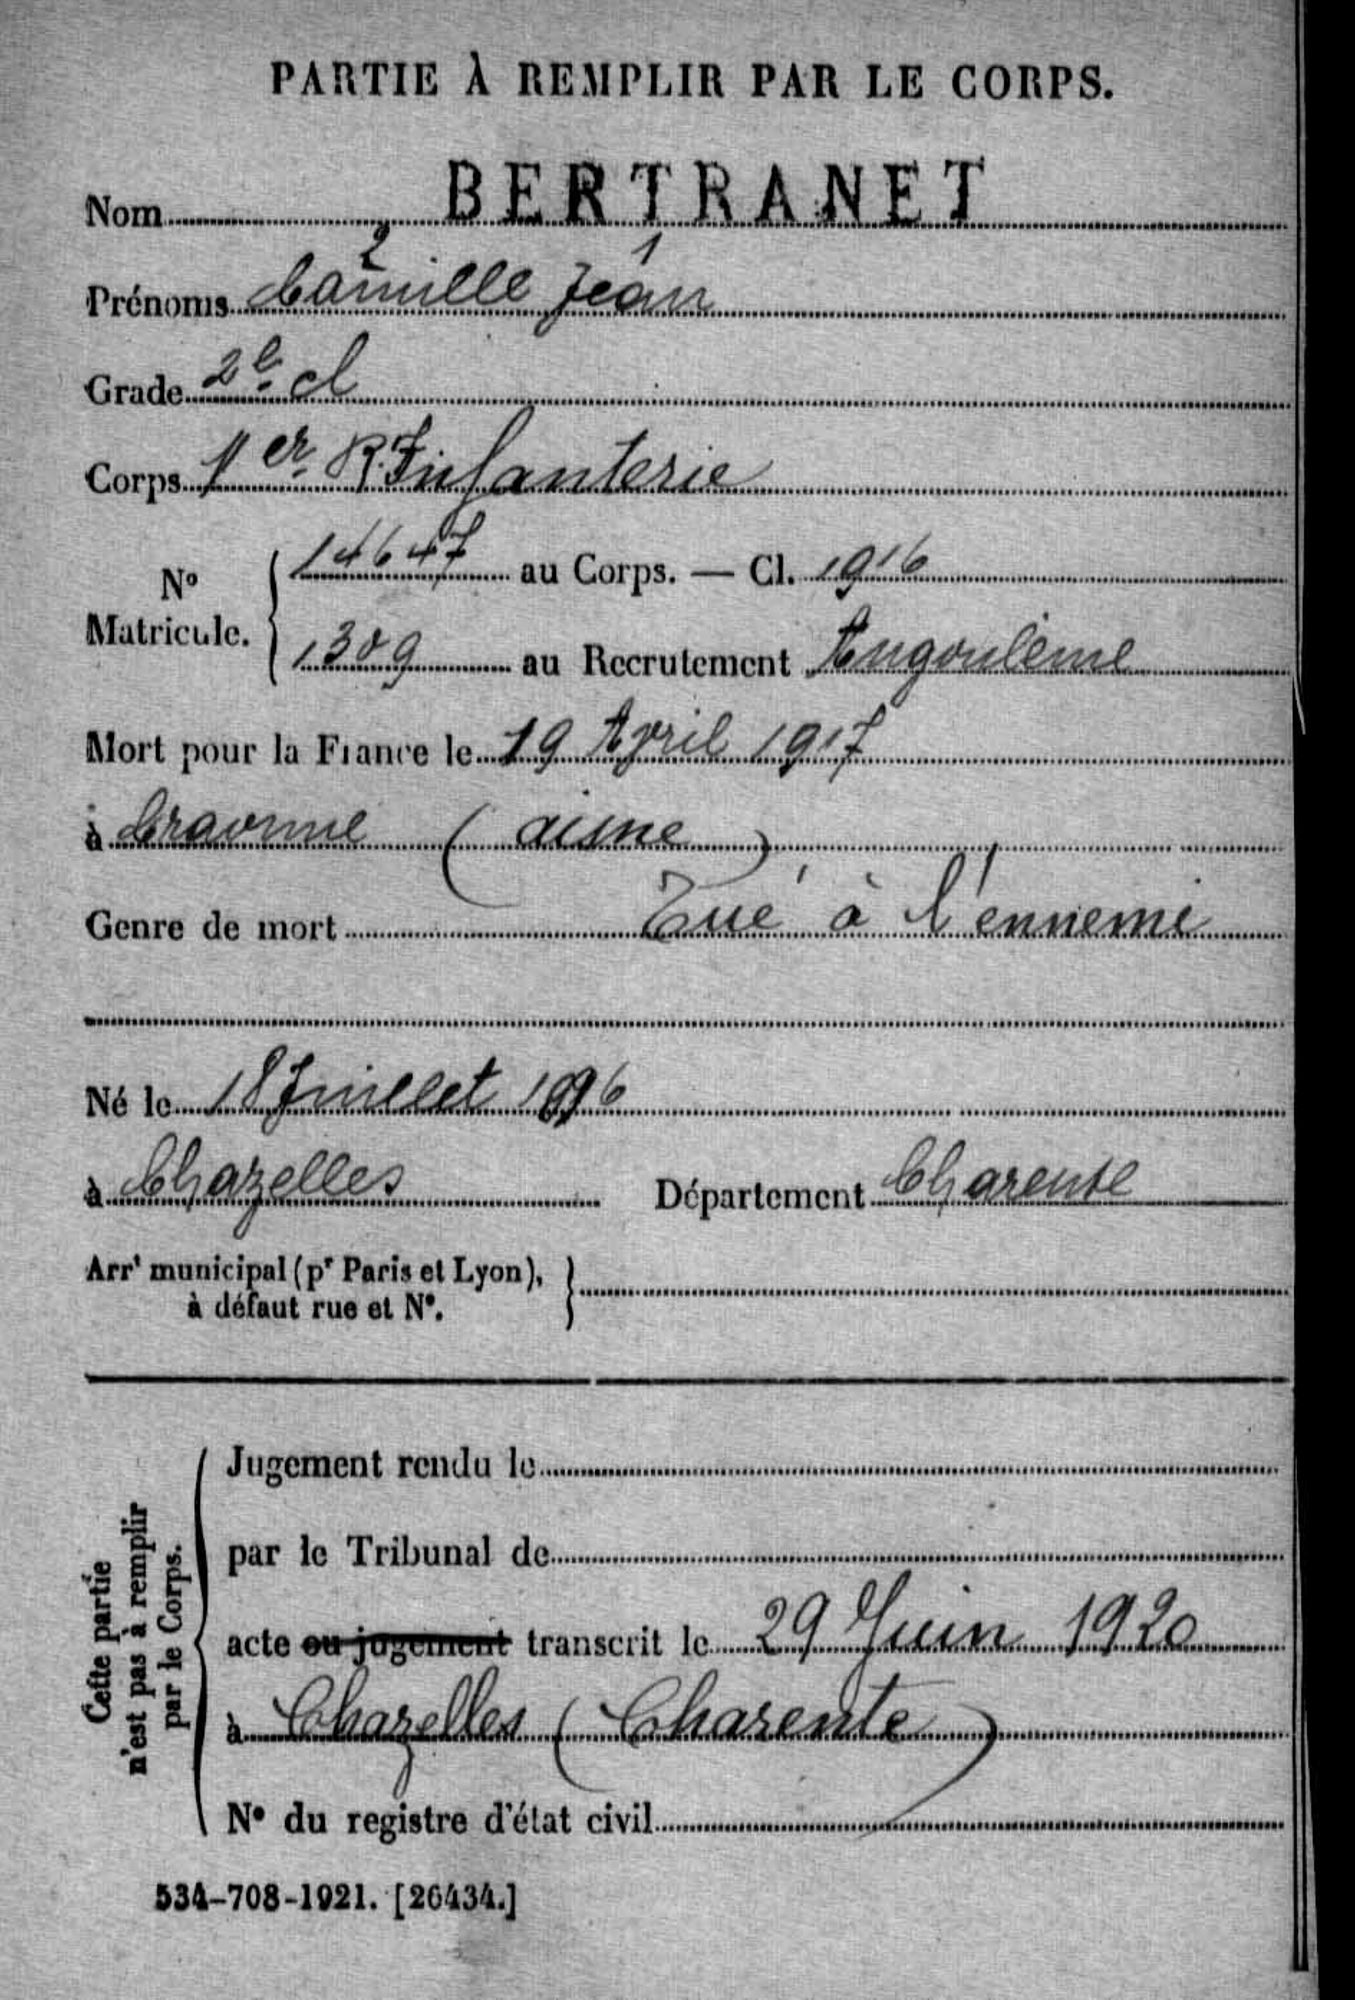 PARTIE À REMPLIR PAR LE CORPS.
Nom BERTRANET
2 1
Prénoms Camille Jean
Grade 2e. cl
Corps 1er R. Infanterie
No Matricule. { 14647 au Corps. — Cl. 1916
1309 au Recrutement Angoulème
Mort pour la France le 19 Avril 1917
à Craonne (aisne)
Genre de mort Tué à l'ennemi
Né le 18 Juillet 1896
à Chazelles Département Charente
Arrt municipal (pr Paris et Lyon), }
à défaut rue et No.
Cette partie
n'est pas à remplir
par le Corps.
Jugement rendu le
par le Tribunal de
acte ou jugement transcrit le 29 Juin 1920
à Chazelles (Charente)
No du registre d'état civil
534-708-1921. [26434.]